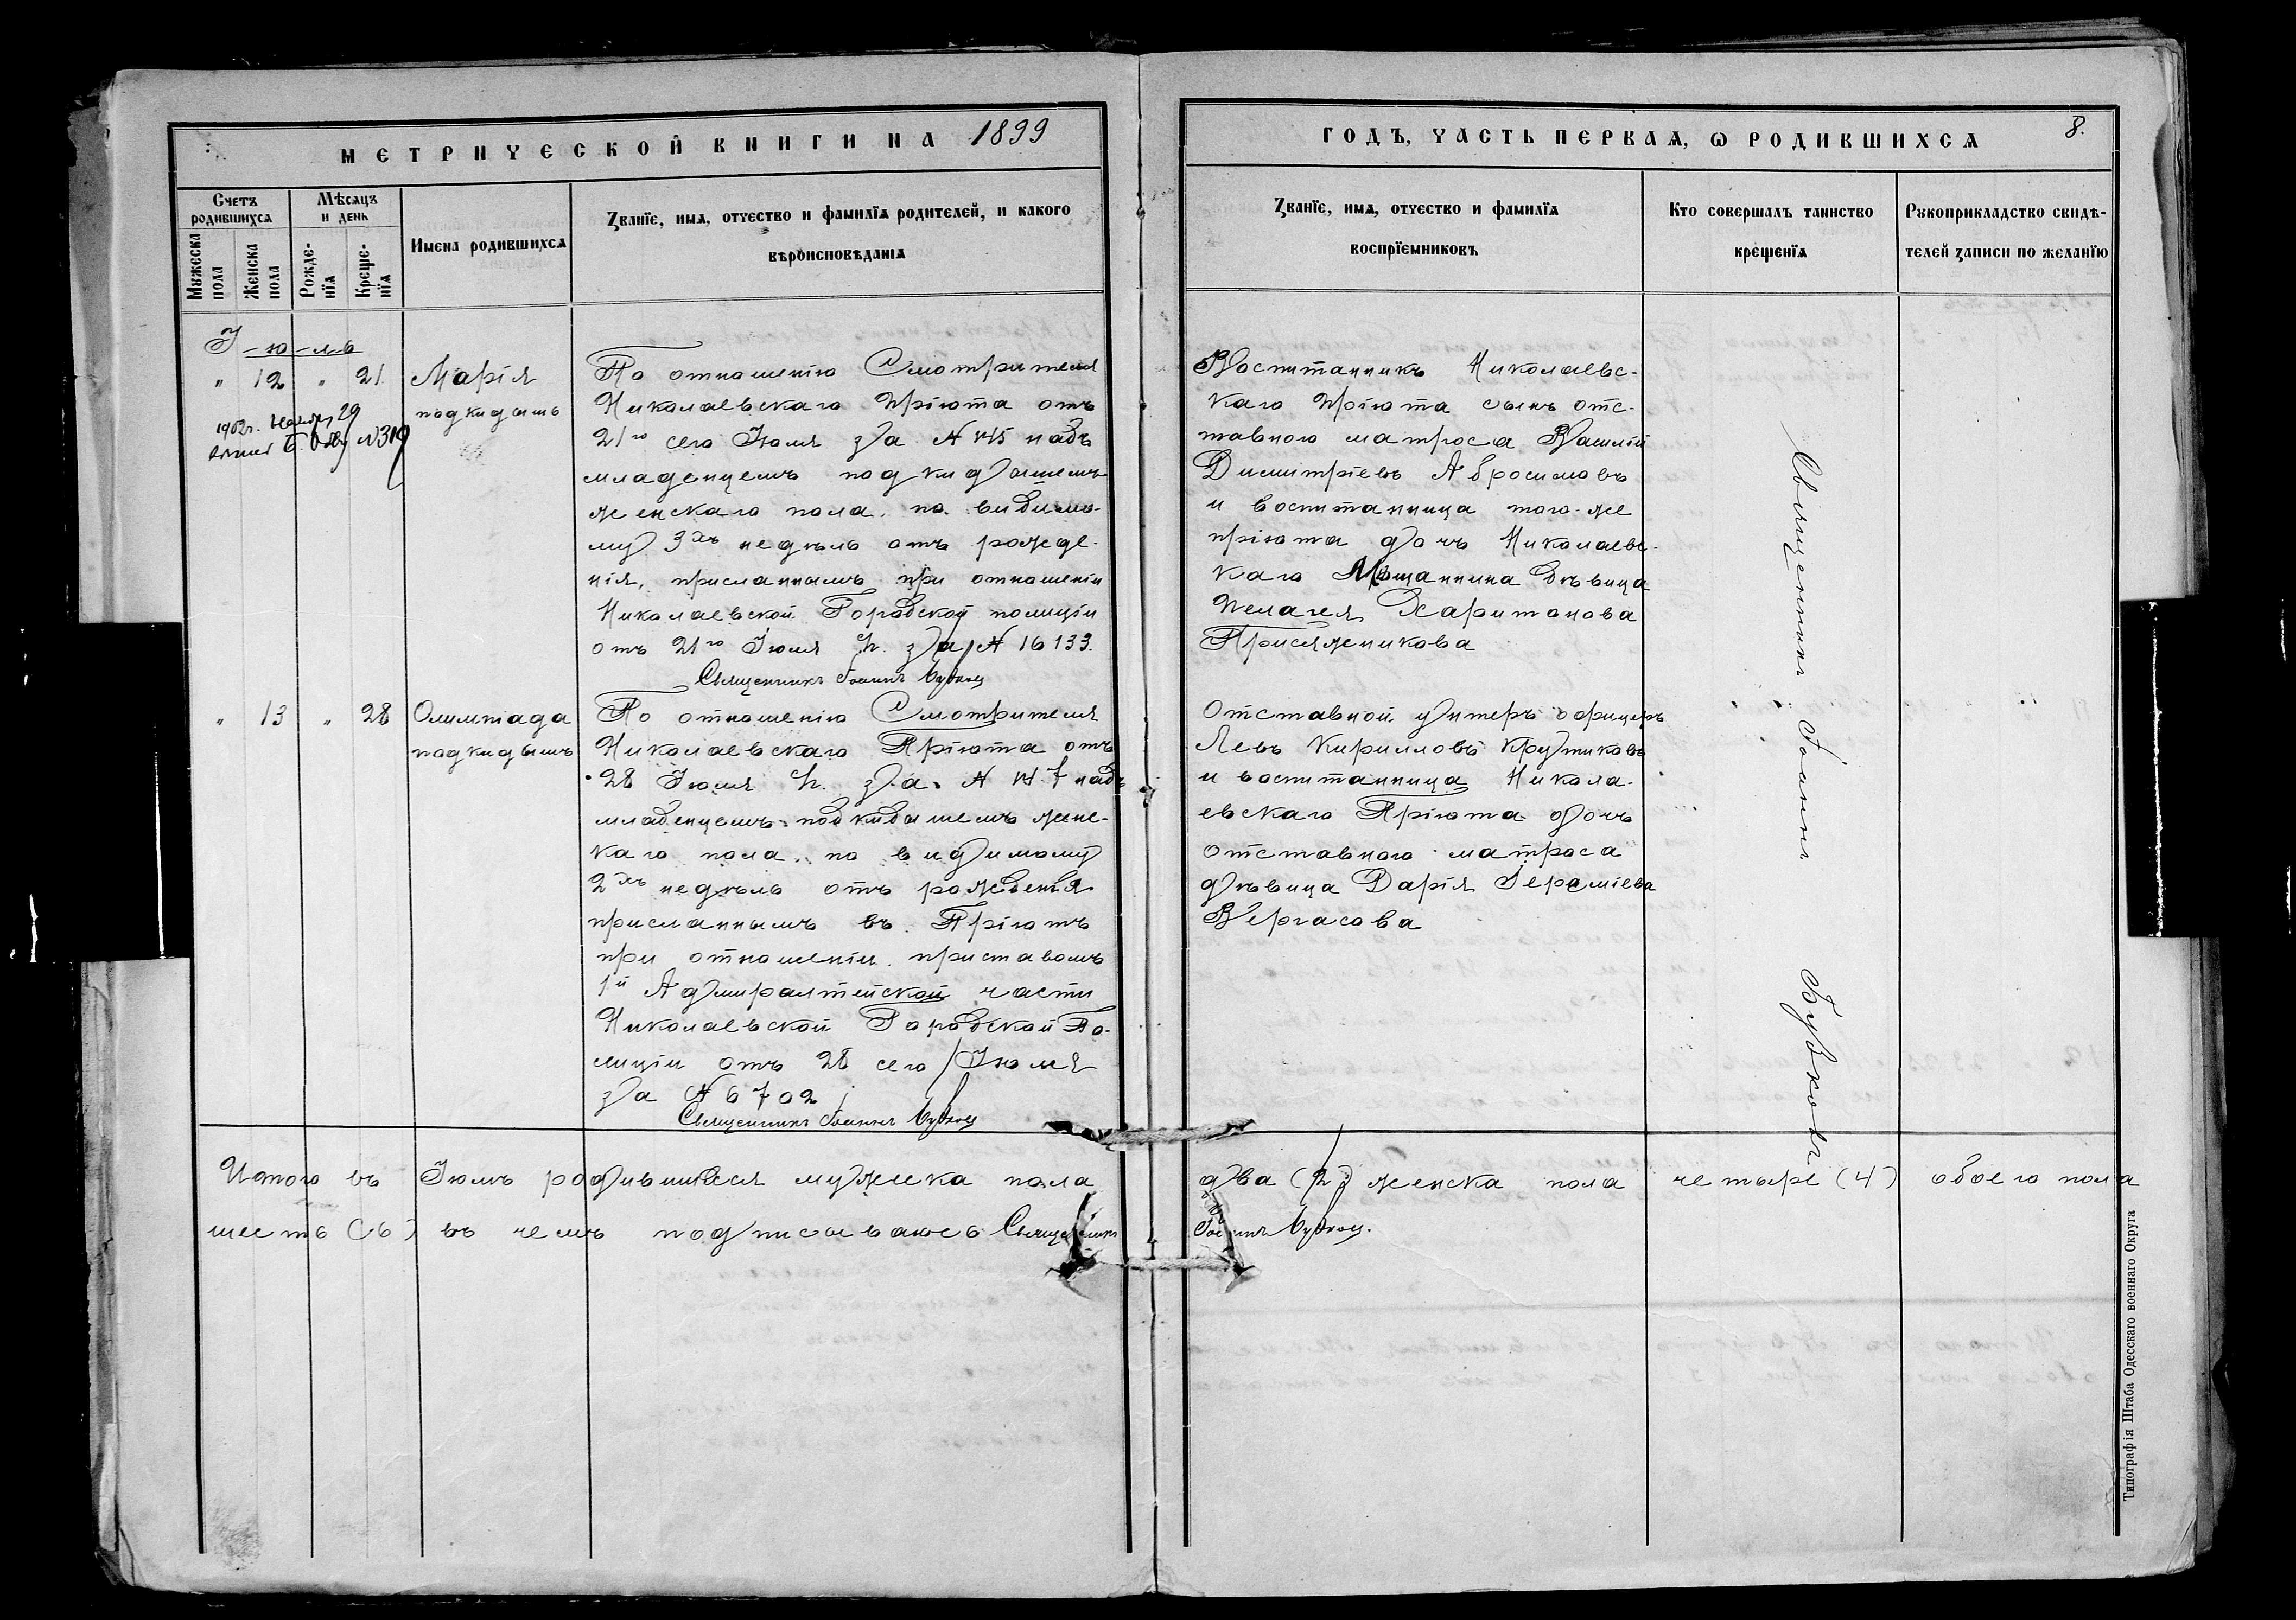 МЕТРИЧЕСКОЙ КНИГИ НА 1899
Счетъ родившихся
Мѣсяцъ и день
Мужеска пола
Женска пола
Рожденїя
Крещенїя
Имена родившихся
Званїе, имя, отчество и фамилїя родителей, и какого
вѣроисповѣданія
Іюль
" 12 " 21
Марія
подкидышъ
1902г. 29
№319
По отношенію Смотрителя
Николаевскаго Пріюта отъ
21го сего Іюля за № 145 надъ
младенцемъ подкидышемъ
женскаго пола, по видимо-
му 3хъ недѣль отъ рожде-
нія, присланнымъ при отношеніи
Николаевской Городской полиціи
отъ 21го Іюля за № 16133.
Священникъ Іоаннъ
" 13 " 28
Олимпіада
подкидышъ
По отношенію Смотрителя
Николаевскаго Пріюта отъ
28 Іюля за № 147 надъ
младенцемъ подкидышемъ женс-
каго пола, по видимому
2хъ недѣль отъ рожденія
присланнымъ въ Пріютъ
при отношеніи приставомъ
1й Адмиралтейской части
Николаевской Городской По-
лиціи отъ 28 сего Іюля
за № 6702
Священникъ Іоаннъ
ГОДЪ, ЧАСТЬ ПЕРВАЯ, Ѡ РОДИВШИХСЯ 8.
Званїе, имя, отчество и фамилїя
воспрїемниковъ
Кто совершалъ таинство
крещенїя
Рукоприкладство свидѣ-
телей записи по желанїю
Воспитанникъ Николаевс-
каго Пріюта сынъ отс-
тавного матроса Василій
Димитріевъ Абросимовъ
и воспитанница того-же
пріюта дочь Николаевс-
каго Мѣщанина дѣвица
Пелагея Харитонова
Присяжникова
Отставной унтеръ офицеръ
Левъ Кирилловъ Крутиковъ
и воспитанница Никола-
евскаго Пріюта дочь
отставного матроса
дѣвица Дарія Іереміева
Вергасова
Священникъ Іоаннъ
Итого въ Іюлѣ родившихся мужска пола два (2) женска пола четыре (4) обоего пола
шесть (6) въ чемъ подписываюсь Священникъ Іоаннъ
Типографія Штаба Одесскаго военнаго Округа